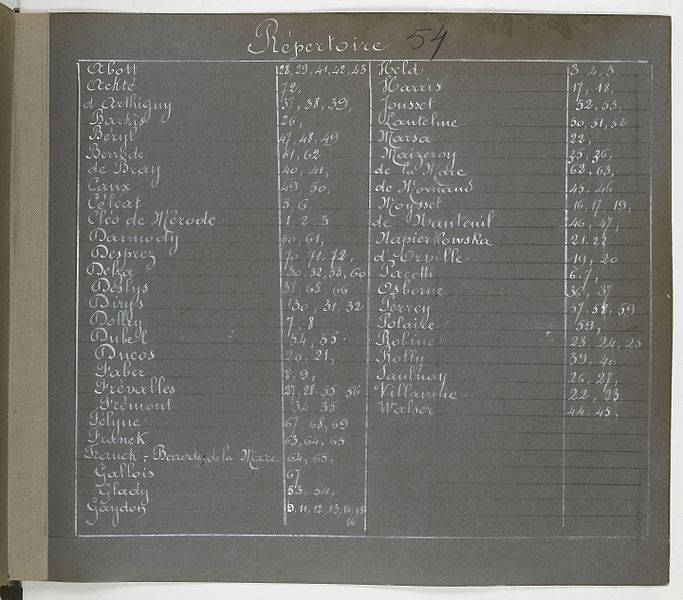 Répertoire 54
Abott 28, 29, 41, 42, 43
Ackté 72,
d'Arthigny 37, 38, 39,
Barkis 26,
Béryl 47, 48, 49
Berrède 61, 62
de Bray 40, 41,
Caux 49, 50,
Céléat 5, 6,
Cléo de Mérode 1, 2, 3
Darmody 60, 61,
Desprez 70, 71, 72,
Delza 30, 32, 33, 60
Deslys 37, 65, 66
Dirys 30, 31, 32
Dolley 7, 8
Dubell 54, 55.
Ducos 20, 21,
Faber 8, 9,
Frévalles 27, 28, 55, 56
Frémont 34, 35
Félyne 67, 68, 69
Franck 63, 64, 65
Franck - Berrède, de la Mare 64, 65.
Gallois 67
Glady 53, 54,
Gaydon 9, 11, 12, 13, 14, 15
16
Held 3, 4, 5.
Harris 17, 18,
Jousset 52, 53,
Lantelme 50, 51, 52
Marsa 22,
Maizeroy 25, 26,
de la Mare 62, 63,
de Mornand 45, 46
Moysset 16, 17, 19,
de Nanteuil 46, 47,
Napierkowska 21, 22
d'Orville 19, 20
Pacetti 6, 7,
Osborne 36, 37
Perrey 57, 58, 59
Polaire 59,
Robine 23, 24, 25
Rolly 39, 40
Saulnay 26, 27,
Villanche 22, 23
Walser 44, 45,